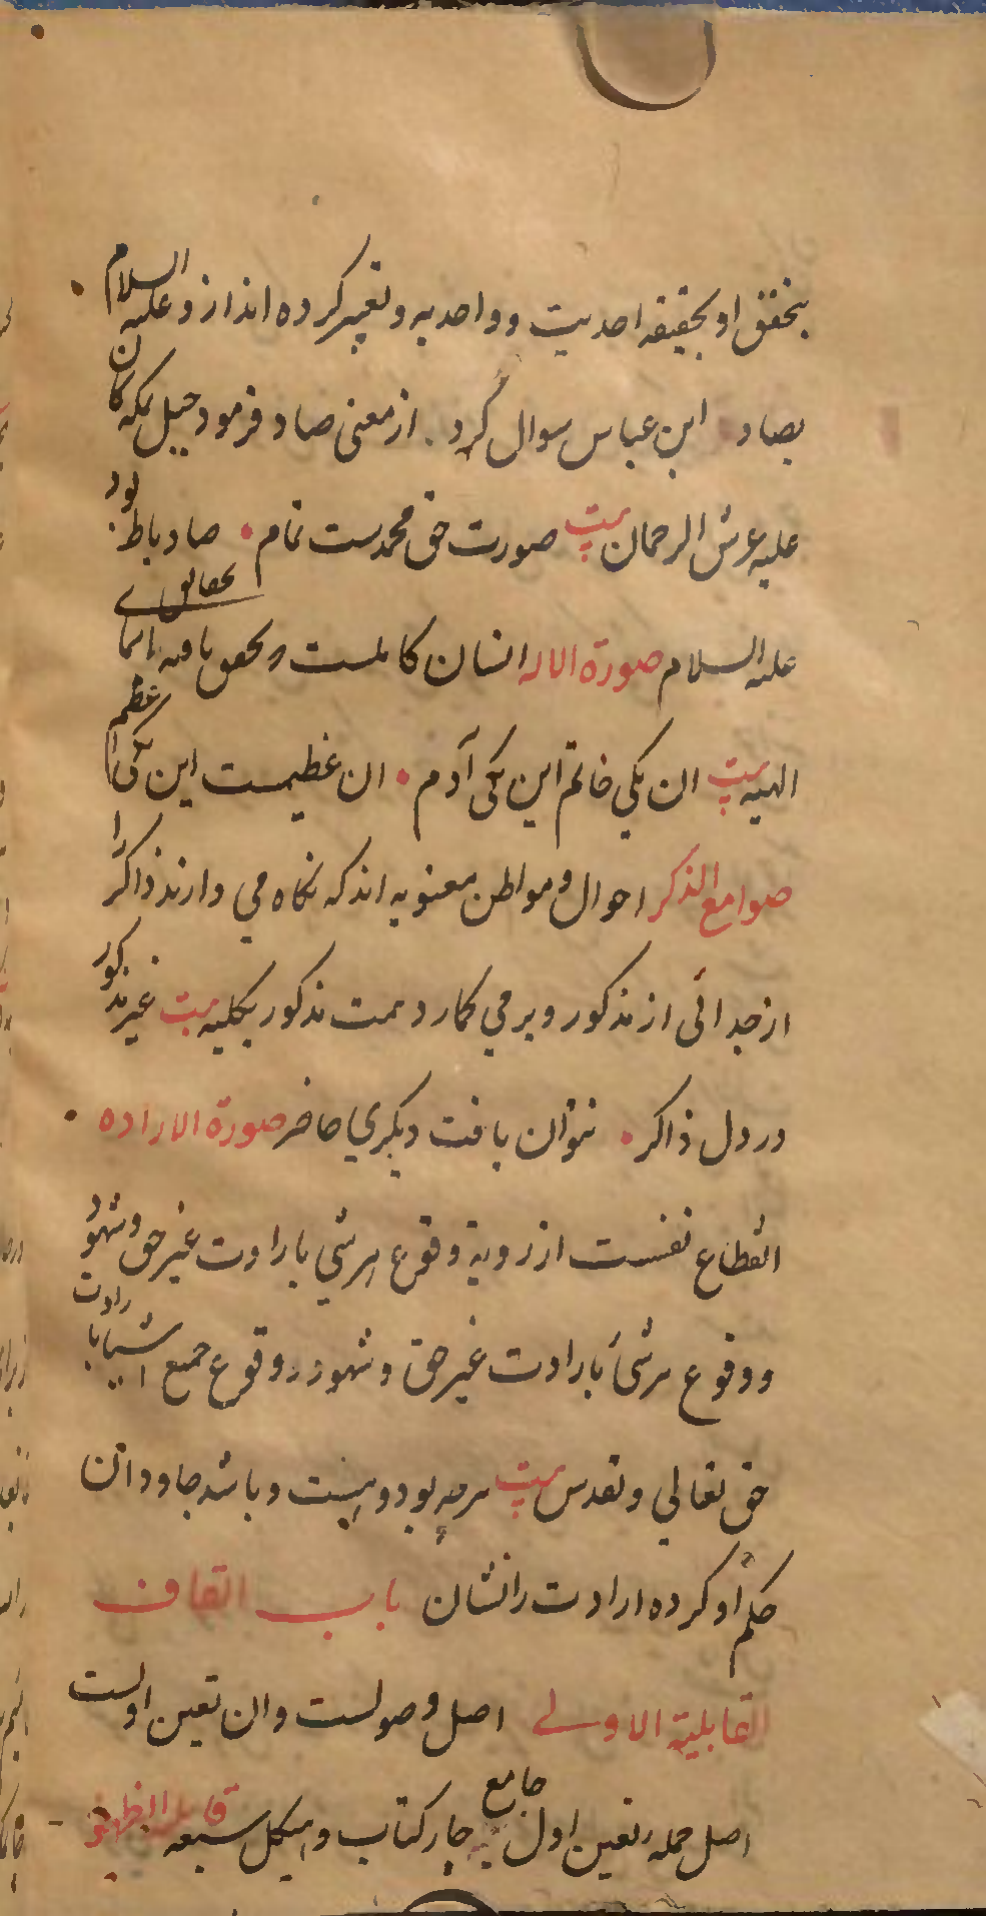 بتحقق او بحقیقه احدیت و واحدیه و تعبیر کرده اند ازو علیه السلام
بصاد ابن عباس سوال کرد از معنی صاد فرمود جبل بمکه کان
علیه عرش الرحمان بیت صورت حق محمدست تمام صاد باطن بود
علیه السلام صورة الاله انسان کاملست و تحقق یافته بحقایق اسمای
الهیه بیت ان یکی خاتم این یکی آدم ان عظیمست این یکی اعظم
صوامع الذکر احوال و مواطن معنویه اند که نگاه می دارند ذاکر را
از جدائی از مذکور و برمی کمارد همت مذکور بکلیه بیت غیر مذکور
در دل ذاکر نتوان یافت دیکری حاضر صورة الاراده
انقطاع نفسست از رویة وقوع هر شی بارادت غیر حق و شهود
و وقوع هر شئ بارادت غیر حق و شهود وقوع جمیع اشیا بارادت
حق تعالی و تقدس بیت هرچه بود و هست و باشد جاودان
حکم او کرده ارادت را نشان باب القاف
القابلیة الاولے اصل وصولست وان تعین اولست
اصل جمله تعین اول جامع چار کتاب و هیکل سبعه قابلیة الظهور